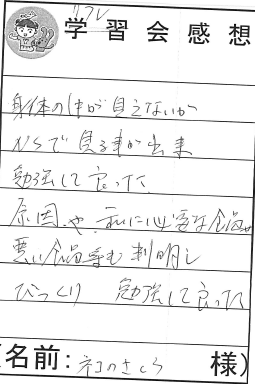 リフレ
学習会感想
身体の中が見えないが
NSで見る事が出来
勉強して良った
原因や私に必要な食品
悪い食品等も判明し
びっくり 勉強して良った
(名前: ネコのさくら 様)